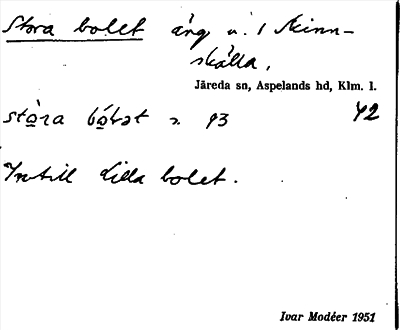 Stora bolet äng u. / Skinn-
skälla.
Järeda sn, Aspelands hd, Klm. l.
42
stòra bólət n. 93
Intill Lilla bolet.
Ivar Modéer 1951